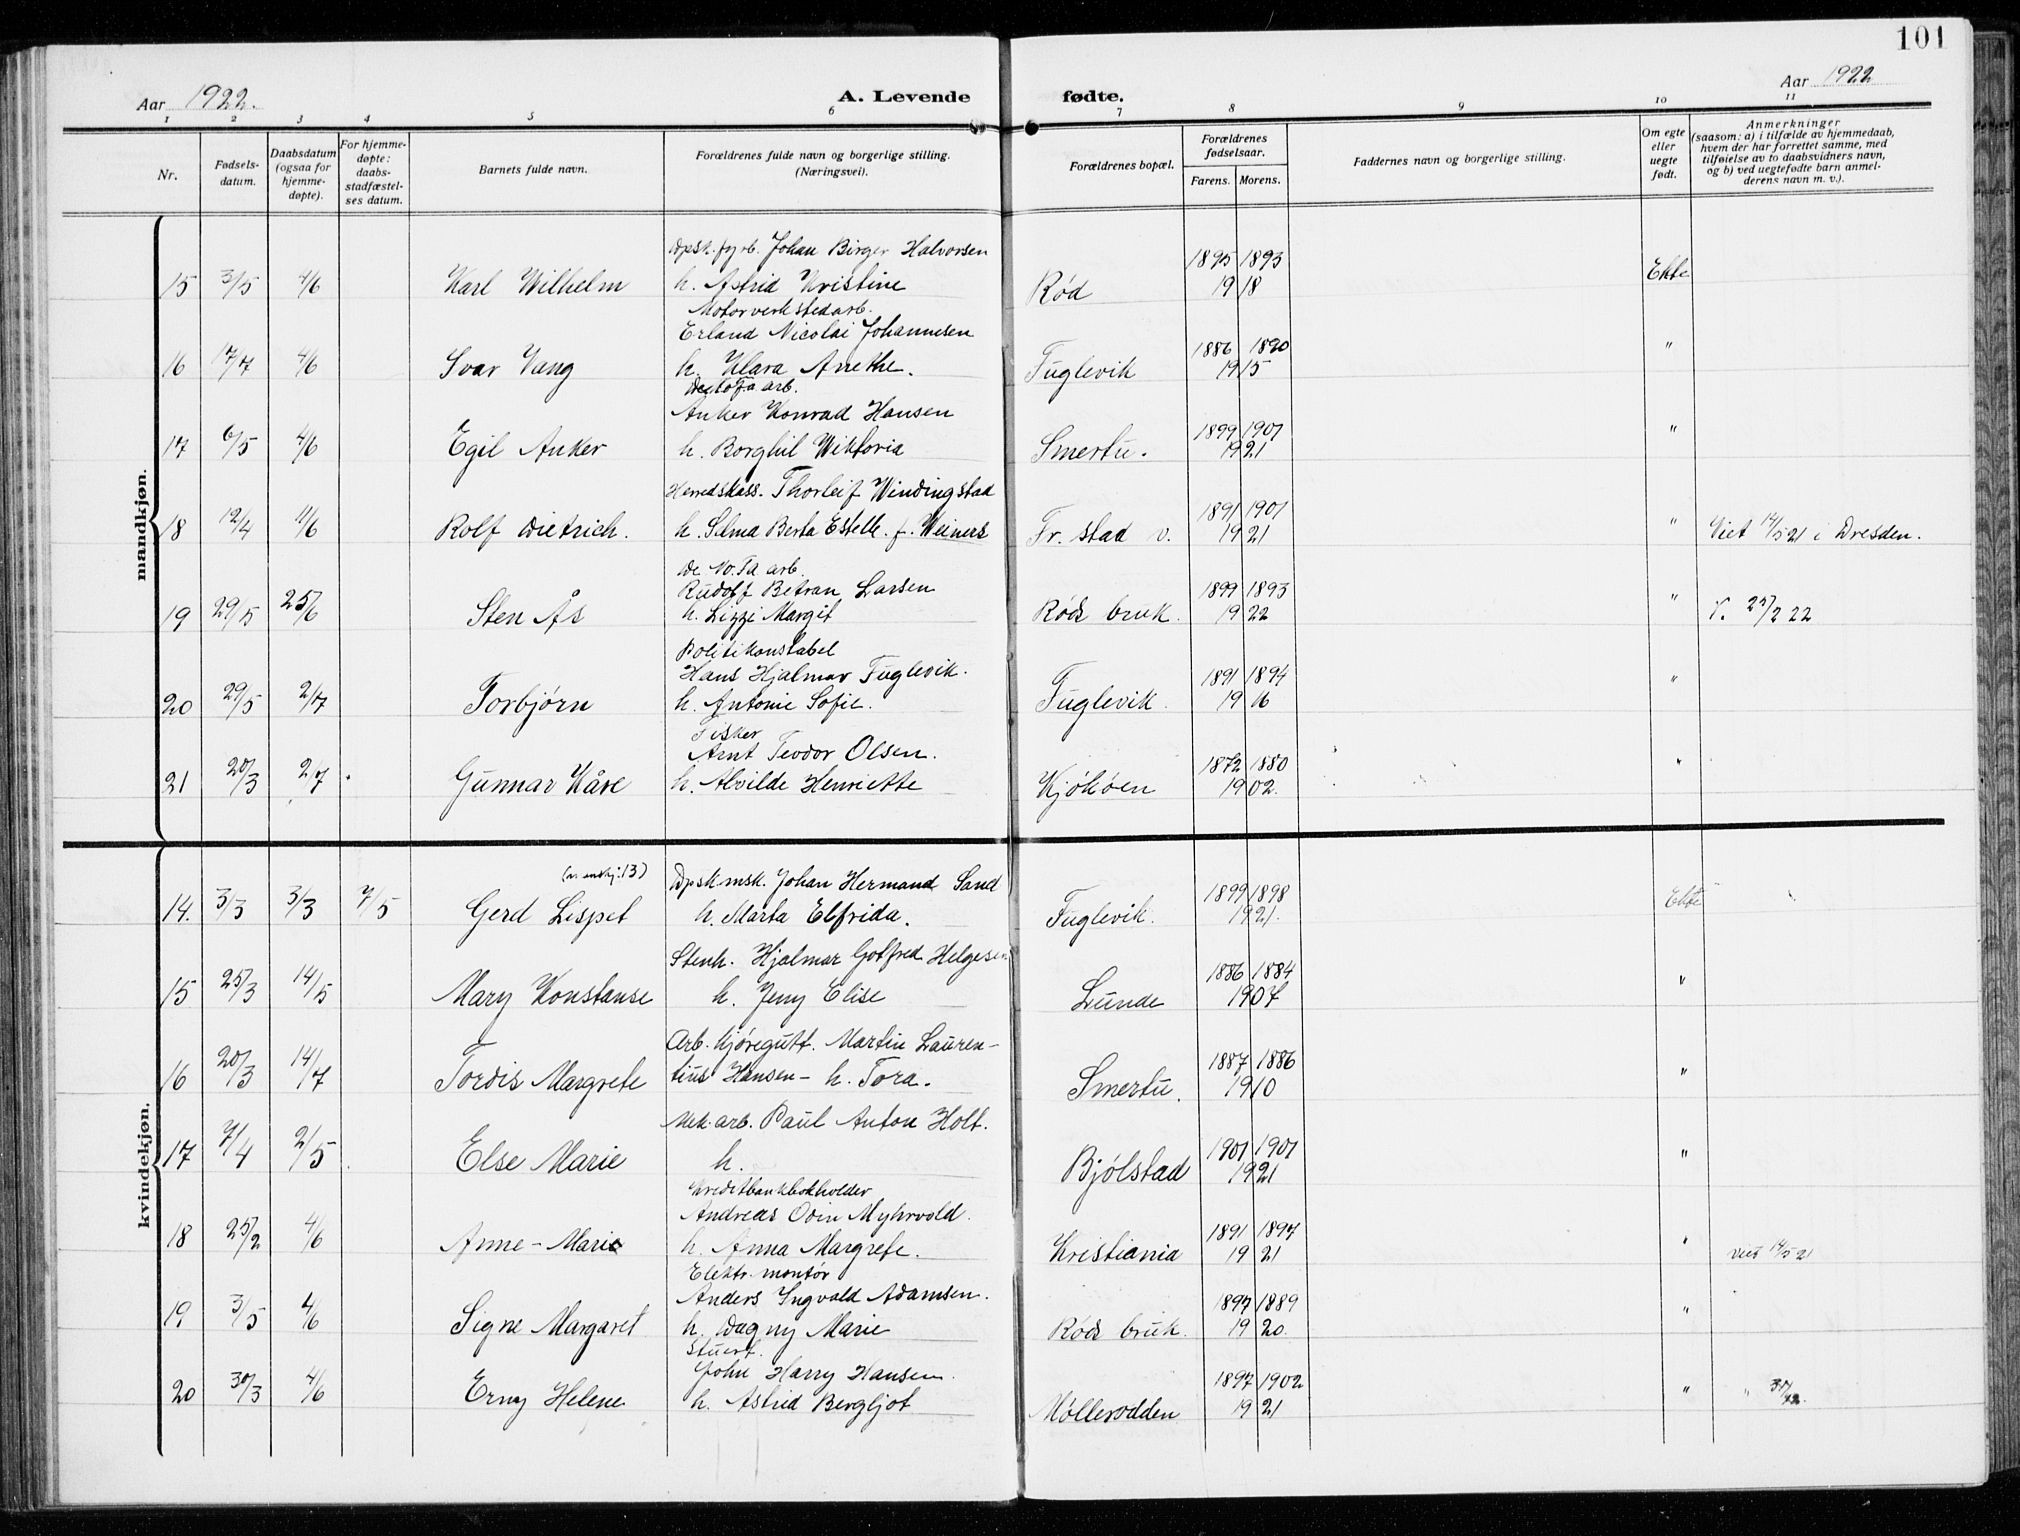 101
Aar 1922. A. Levende fødte. Aar 1922
1 2 3 4 5 6 7 8 9 10 11
Nr.
Fødsels-
datum.
Daabsdatum
(ogsaa for
hjemme-
døpte).
For hjemme-
døpte:
daabs-
stadfæstel-
ses datum.
Barnets fulde navn.
Forældrenes fulde navn og borgerlige stilling.
(Næringsvei).
Forældrenes bopæl.
Forældrenes
fødselsaar.
Farens. Morens.
Faddernes navn og borgerlige stilling.
Om egte
eller
uegte
født.
Anmerkninger
(saasom: a) i tilfælde av hjemmedaab,
hvem der har forrettet samme, med
tilføielse av to daabsvidners navn,
og b) ved uegtefødte barn anmel-
derens navn m. v.).
mandkjøn.
Dpsk. fyrb. Johan Birger Halvorsen 1895 1893
15 3/5 4/6 Karl Wilhelm h. Astrid Kristine Rød 1918 Ekte
Motorverkstedarb.
Erland Nicolai Johannesen 1886 1890
16 17/7 4/6 Ivar Vang h. Klara Anethe. Fuglevik 1915 "
Denofa arb.
Anker Konrad Hansen 1899 1901
17 6/5 4/6 Egil Anker h. Borghil Wiktoria Smertu. 1921 "
Herredskass. Thorleif Windingstad 1891 1901
18 12/4 11/6 Rolf Dietrich. h. Selma Berta Estelle. f. Weiners Fr. stad v. 1921 " Viet 14/5 21 i Dresden.
De. No. Fa arb.
Rudolf Betran Larsen 1899 1893
19 29/5 25/6 Sten Ås h. Lizzi Margit Røds bruk. 1922 " V. 25/2 22
Politikonstabel
Hans Hjalmar Fuglevik. 1891 1894
20 29/5 2/7 Torbjørn h. Antonie Sofie. Fuglevik. 1916 "
Fisker
Arnt Teodor Olsen. 1872 1880
21 20/3 2/7 Gunnar Kåre h. Alvilde Henriette Kjøkøen 1902. "
kvindekjøn.
Dpsk msk. Johan Hermand Sand 1899 1898
14. 3/3 3/3 7/5 Gerd Lispet h. Marta Elfrida. Fuglevik. 1921. Ekte
Stenh. Hjalmar Gotfred Helgesen 1886 1884
15 25/3 14/5 Mary Konstanse h. Jeny Elise Lunde 1907 "
Arb. Kjøregutt. Martin Lauren- 1887 1886
16 20/3 14/7 Tordis Margrete tius Hansen - h. Tora. Smertu. 1910 "
Mek. arb. Paul Anton Holt. 1901 1901
17 7/4 2/5 Else Marie h. Bjølstad 1921 "
Kreditbankbokholder
Andreas Odin Myhrvold. 1891 1897
18 25/2 4/6 Anne-Marie h. Anna Margrete. Kristiania 1921 " viet 14/5 21
Elektr. montør
Anders Ingvald Adamsen. 1897 1889
19 3/5 4/6 Signe Margaret h. Dagny Marie Røds bruk. 1920. "
Stuert.
John Harry Hansen. 1897 1902
20 30/3 4/6 Erny Helene h. Astrid Bergljot Møllerodden 1921 " "